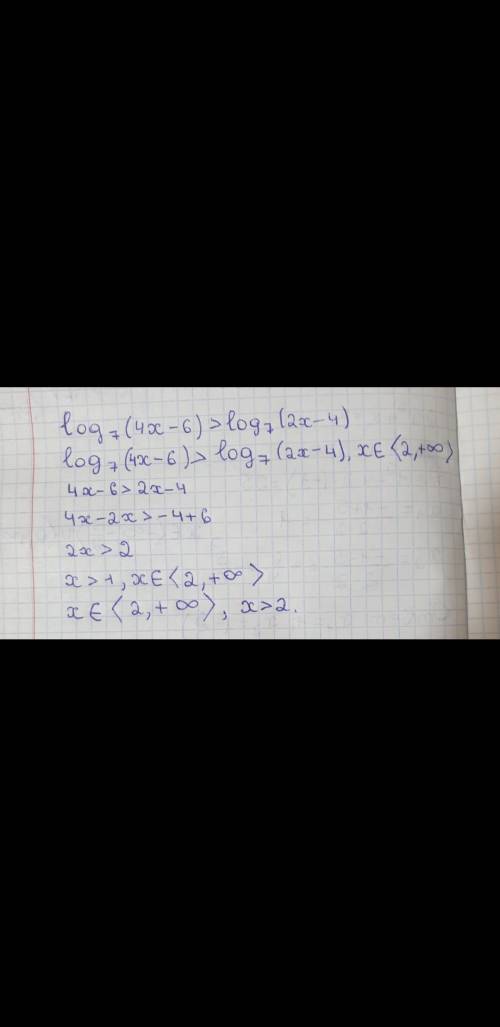 log₇(4x-6)>log₇(2x-4)
log₇(4x-6)> log₇(2x-4), x∈⟨2,+∞⟩
4x-6>2x-4
4x-2x>-4+6
2x>2
x>1, x∈⟨2,+∞⟩
x∈⟨2,+∞⟩, x>2.